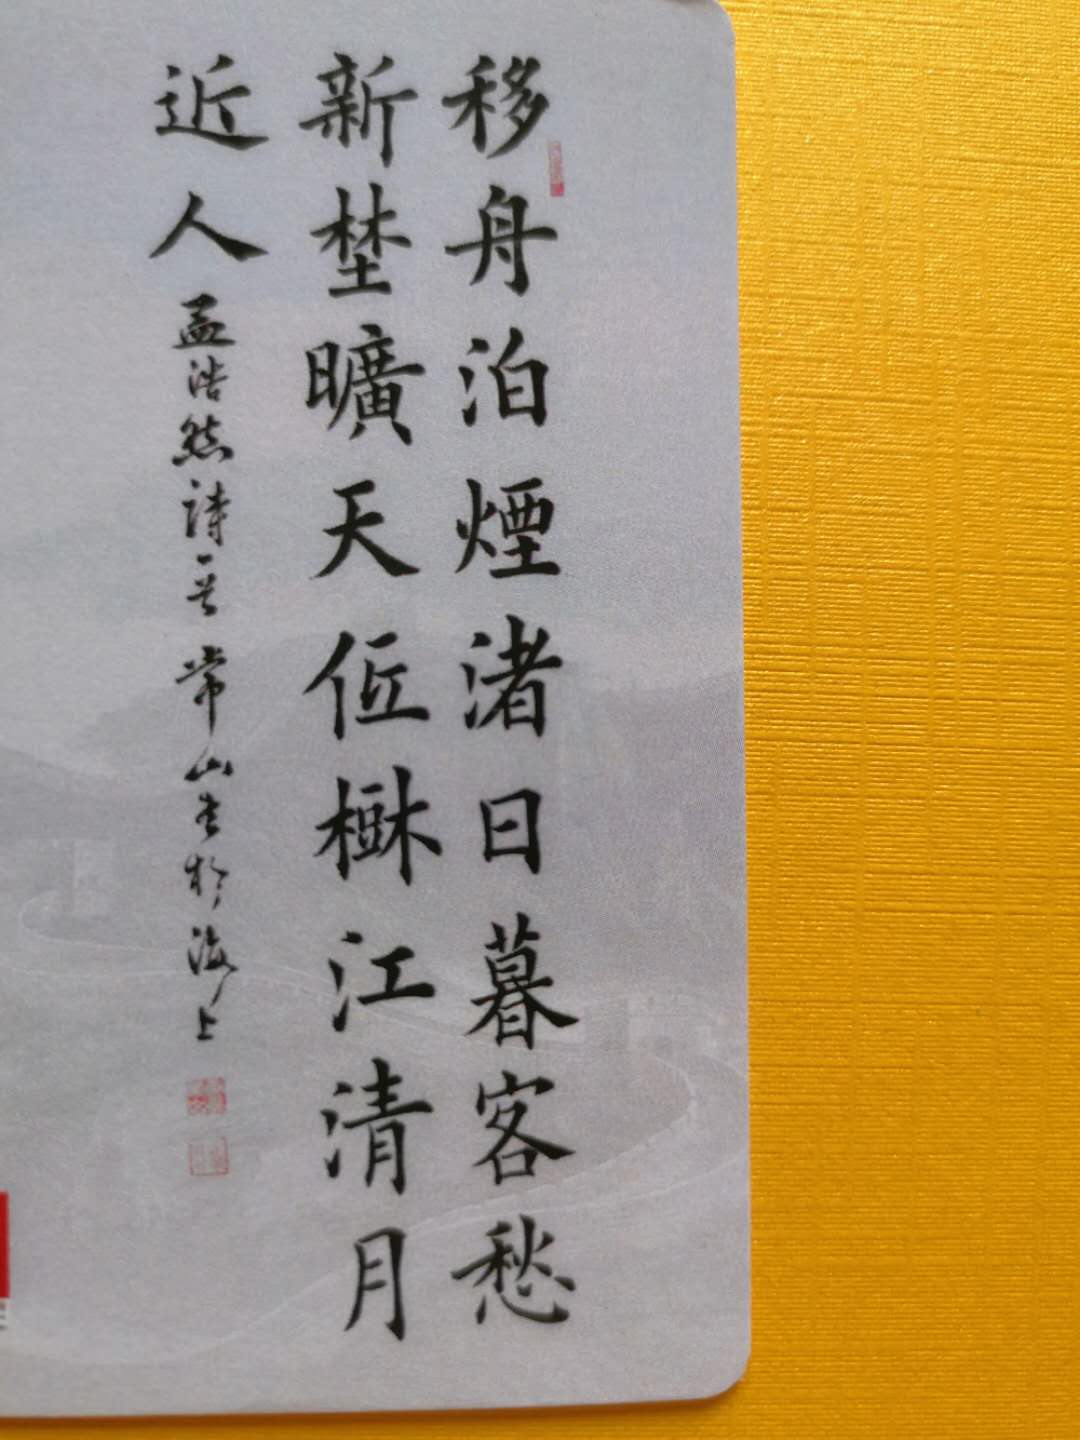 移舟泊煙渚日暮客愁
新埜曠天仾樹江清月
近人孟浩然詩一首 常山書於海上